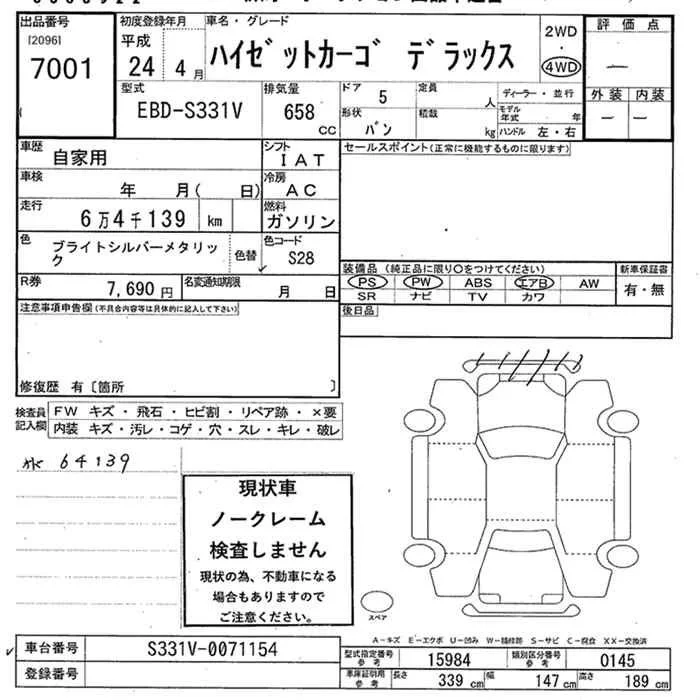 出品番号
[2096]
7001
初度登録年月
平成
24 4 月
車名・グレード
ハイゼットカーゴ デラックス
2WD
・
4WD
評価点
―
外装 内装
― ―
型式
EBD-S331V
排気量
658 cc
ドア 5
形状 バン
定員 人
積載 kg
ディーラー・並行
モデル年式 年
ハンドル 左・右
車歴 自家用
シフト IAT
セールスポイント(正常に機能するものに限ります)
車検 年 月( 日)
冷房 AC
走行 6万4千139 km
燃料 ガソリン
色 ブライトシルバーメタリック
色替
色コード S28
装備品(純正品に限り○をつけてください)
新車保証書
PS PW ABS エアB AW
有・無
SR ナビ TV カワ
R券 7,690円
名変通知期限 月 日
後日品
注意事項申告欄(不具合内容等は具体的に記入して下さい)
修復歴 有〔箇所 〕
検査員記入欄
FW キズ・飛石・ヒビ割・リペア跡・×要
内装 キズ・汚レ・コゲ・穴・スレ・キレ・破レ
64139
現状車
ノークレーム
検査しません
現状の為、不動車になる
場合もありますので
ご注意ください。
スペア
A-キズ E-エクボ U-凹み W-補修跡 S-サビ C-腐食 XX-交換済
車台番号 S331V-0071154
登録番号
型式指定番号 参考 15984
類別区分番号 参考 0145
車庫証明用 参考 長さ 339 cm 幅 147 cm 高さ 189 cm